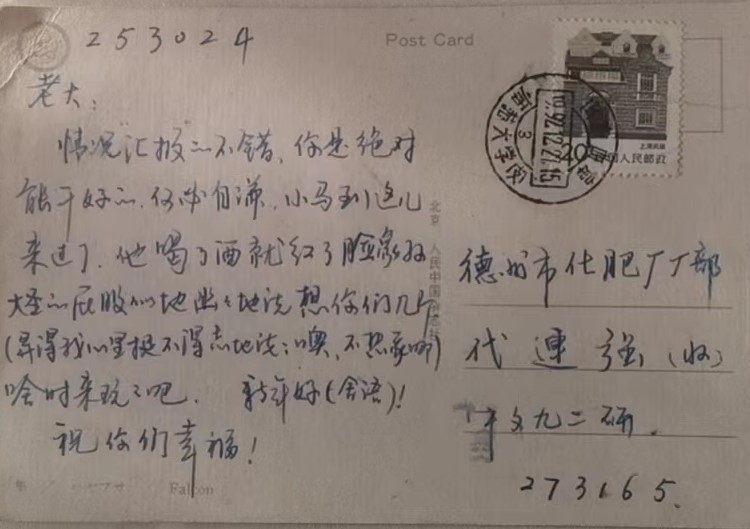 253024
Post Card
老大：
情况"汇报"的不错，你是绝对
能干好的，何必自谦，小马到这儿
来过了，他喝了酒就红了脸象孙
大圣的屁股似地幽幽地说想你们几个
(弄得我心里挺不得志地说：噢，不想家哪)
啥时来玩玩吧． 新年好(舍语)！
祝你们幸福！
Falcon
北京 人民中国杂志社
20 中国人民邮政
上海民居
德州市化肥厂厂部
代連强(收)
中文九二研．
273165．